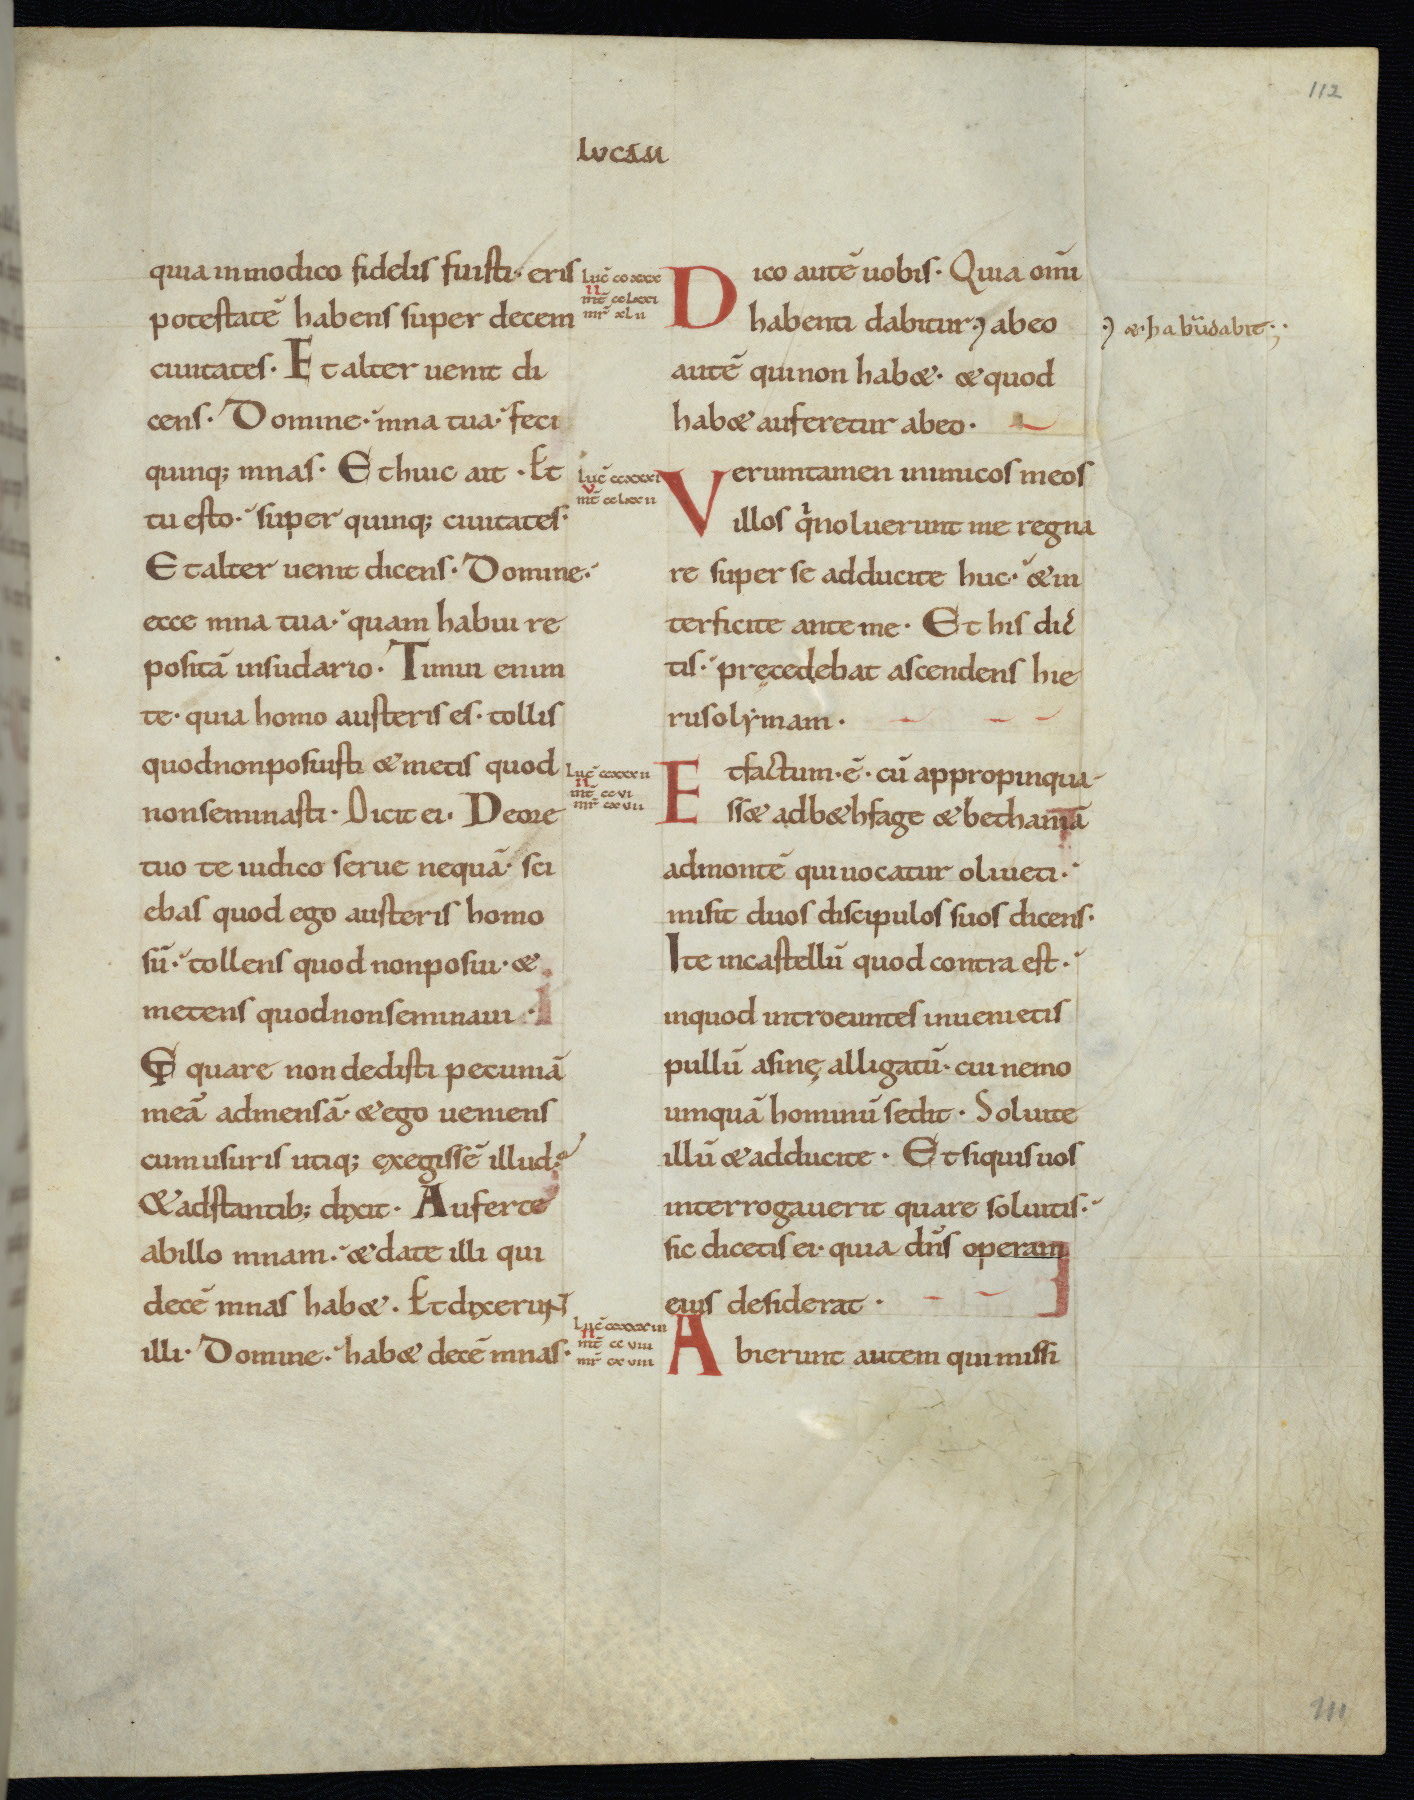 112
LUCAM
quia inmodico fidelis fuisti· eris
potestatē habens super decem
ciuitates· Et alter uenit di
cens· Domine· mna tua· feci
quinq; mnas· Et huic ait · Et
tu esto· super quinq; ciuitates·
Et alter uenit dicens· Domine·
ecce mna tua· quam habui re
positā insudario· Timui enim
te· quia homo austeris es· tollis
quod non posuisti & metis quod
non seminasti· Dicit ei· Deore
tuo te iudico serue nequā· sci
ebas quod ego austeris homo
sū· tollens quod non posui· &
metens quod non seminaui ·
Et quare non dedisti pecuniā
meā admensā· & ego ueniens
cum usuris utiq; exegissē illud·
& adstantib; dixit· Auferte
abillo mnam· & date illi qui
decē mnas hab&· Et dixerunt
illi· Domine· hab& decē mnas·
Luc̄ ccxxx
II
mt̄ cclxxi
mr̄ xlii
Dico autē uobis· Quia omi̅
habenti dabitur, abeo
& habūdabit;
autē qui non hab&· & quod
hab& auferetur abeo·
Luc̄ ccxxxi
V
mt̄ cclxxii
Verumtamen inimicos meos
illos q̇ noluerunt me regna
re super se adducite huc· & in
terficite ante me· Et his dic̄
tis· pręcedebat ascendens hie
rusolẏmam·
Luc̄ ccxxxii
II
mt̄ ccvi
mr̄ cxvii
Et factum·ē· cū appropinqua
ss& adb&hfage & bethaniā
admontē qui uocatur oliueti·
misit duos discipulos suos dicens·
Ite incastellū quod contra est·
inquod introeuntes inuenietis
pullū asinę alligatū· cui nemo
umquā hominū sedit· Soluite
illū & adducite· Et siquis uos
interrogauerit quare soluitis·
sic dicetis ei· quia dn̄s operam
eius desiderat·
Luc̄ ccxxxiii
II
mt̄ ccviii
mr̄ cxviii
Abierunt autem qui missi
111